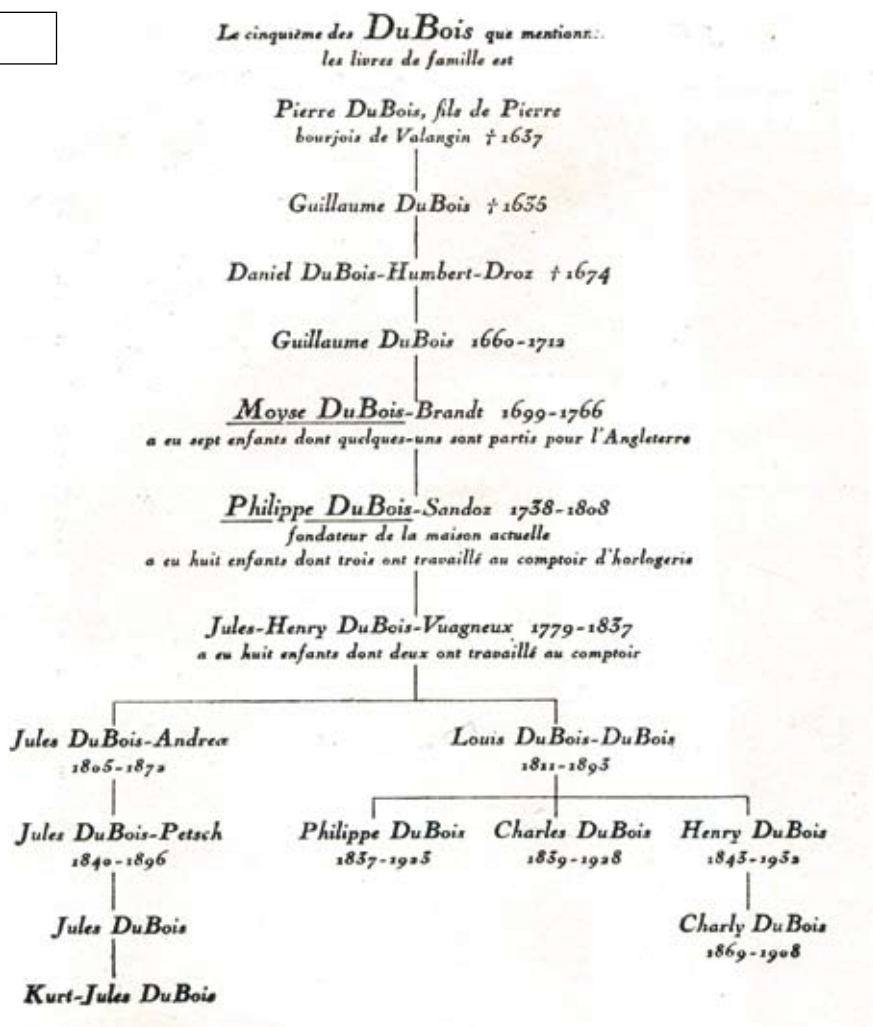 Le cinquième des DuBois que mentionn...
les livres de famille est
Pierre DuBois, fils de Pierre
bourjois de Valangin † 1637
Guillaume DuBois † 1635
Daniel DuBois-Humbert-Droz † 1674
Guillaume DuBois 1660-1712
Moyse DuBois-Brandt 1699-1766
a eu sept enfants dont quelques-uns sont partis pour l'Angleterre
Philippe DuBois-Sandoz 1738-1808
fondateur de la maison actuelle
a eu huit enfants dont trois ont travaillé au comptoir d'horlogerie
Jules-Henry DuBois-Vuagneux 1779-1837
a eu huit enfants dont deux ont travaillé au comptoir
Jules DuBois-Andreæ Louis DuBois-DuBois
1805-1872 1811-1893
Jules DuBois-Petsch Philippe DuBois Charles DuBois Henry DuBois
1840-1896 1837-1923 1839-1928 1843-1932
Jules DuBois Charly DuBois
1869-1908
Kurt-Jules DuBois